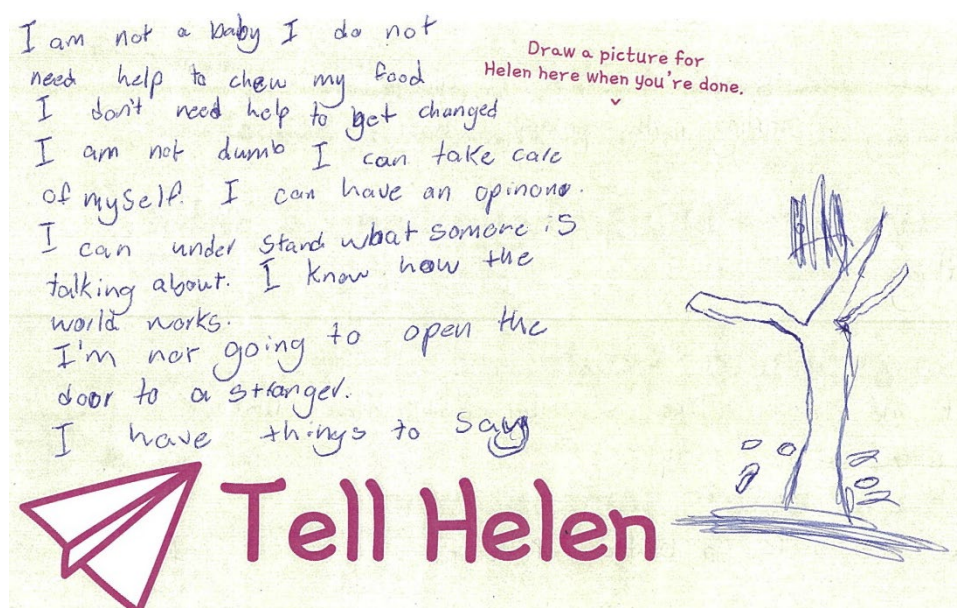 I am not a baby I do not
need help to chew my food
I don't need help to get changed
I am not dumb I can take care
of myself. I can have an opinono.
I can under stand what somone is
talking about. I know how the
world works.
I'm not going to open the
door to a stranger.
I have things to say
Draw a picture for
Helen here when you're done.
Tell Helen